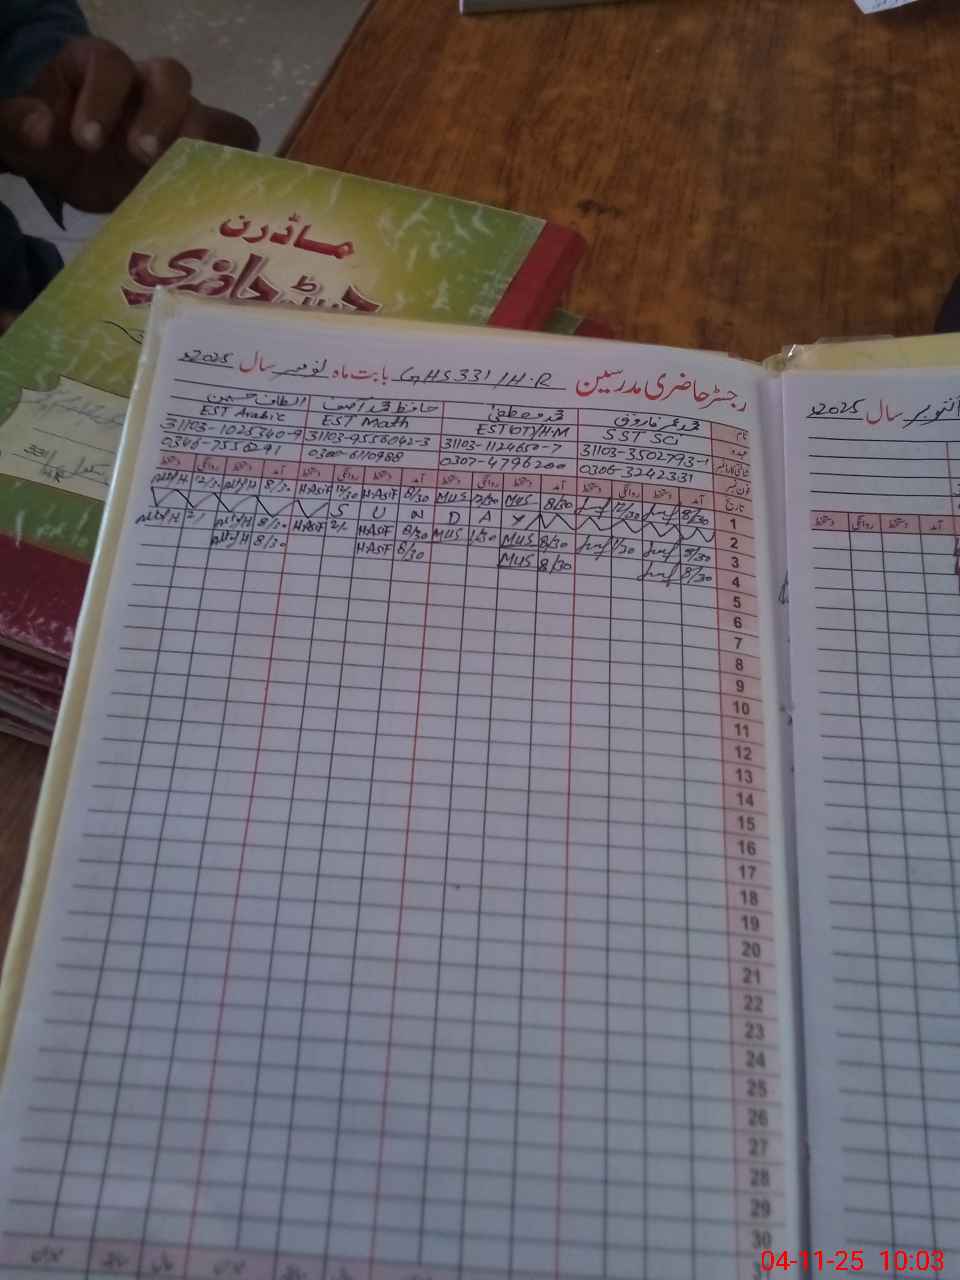 ماڈرن
رجسٹر حاضری
رجسٹر حاضری مدرسین GHS 331/H.R بابت ماہ نومبر سال 2025ء
نام محمد عمر فاروق محمد مصطفیٰ حافظ محمد آصف الطاف حسین
عہدہ SST SCi EST Math EST Arabic
شناختی کارڈ نمبر 31103-3502793-1 31103-1124650-7 31103-9556042-3 31103-1025340-9
فون نمبر 0306-3242331 0307-4796200 0300-6110988
تاریخ آمد دستخط روانگی دستخط آمد دستخط روانگی دستخط آمد دستخط روانگی دستخط آمد دستخط روانگی دستخط
1 8/30 12/30 8/30 MUS 12/30 MUS 8/30 HASIF 12/30 HASIF 8/30
2 S U N D A Y
3 8/30 1/30 8/30 MUS 1/30 MUS 8/30 HASIF HASIF 8/30
4 8/30 8/30 MUS 8/30 HASIF 8/30
5
6
7
8
9
10
11
12
13
14
15
16
17
18
19
20
21
22
23
24
25
26
27
28
29
30
اکتوبر سال 2025ء
آمد دستخط روانگی دستخط
04-11-25 10:03